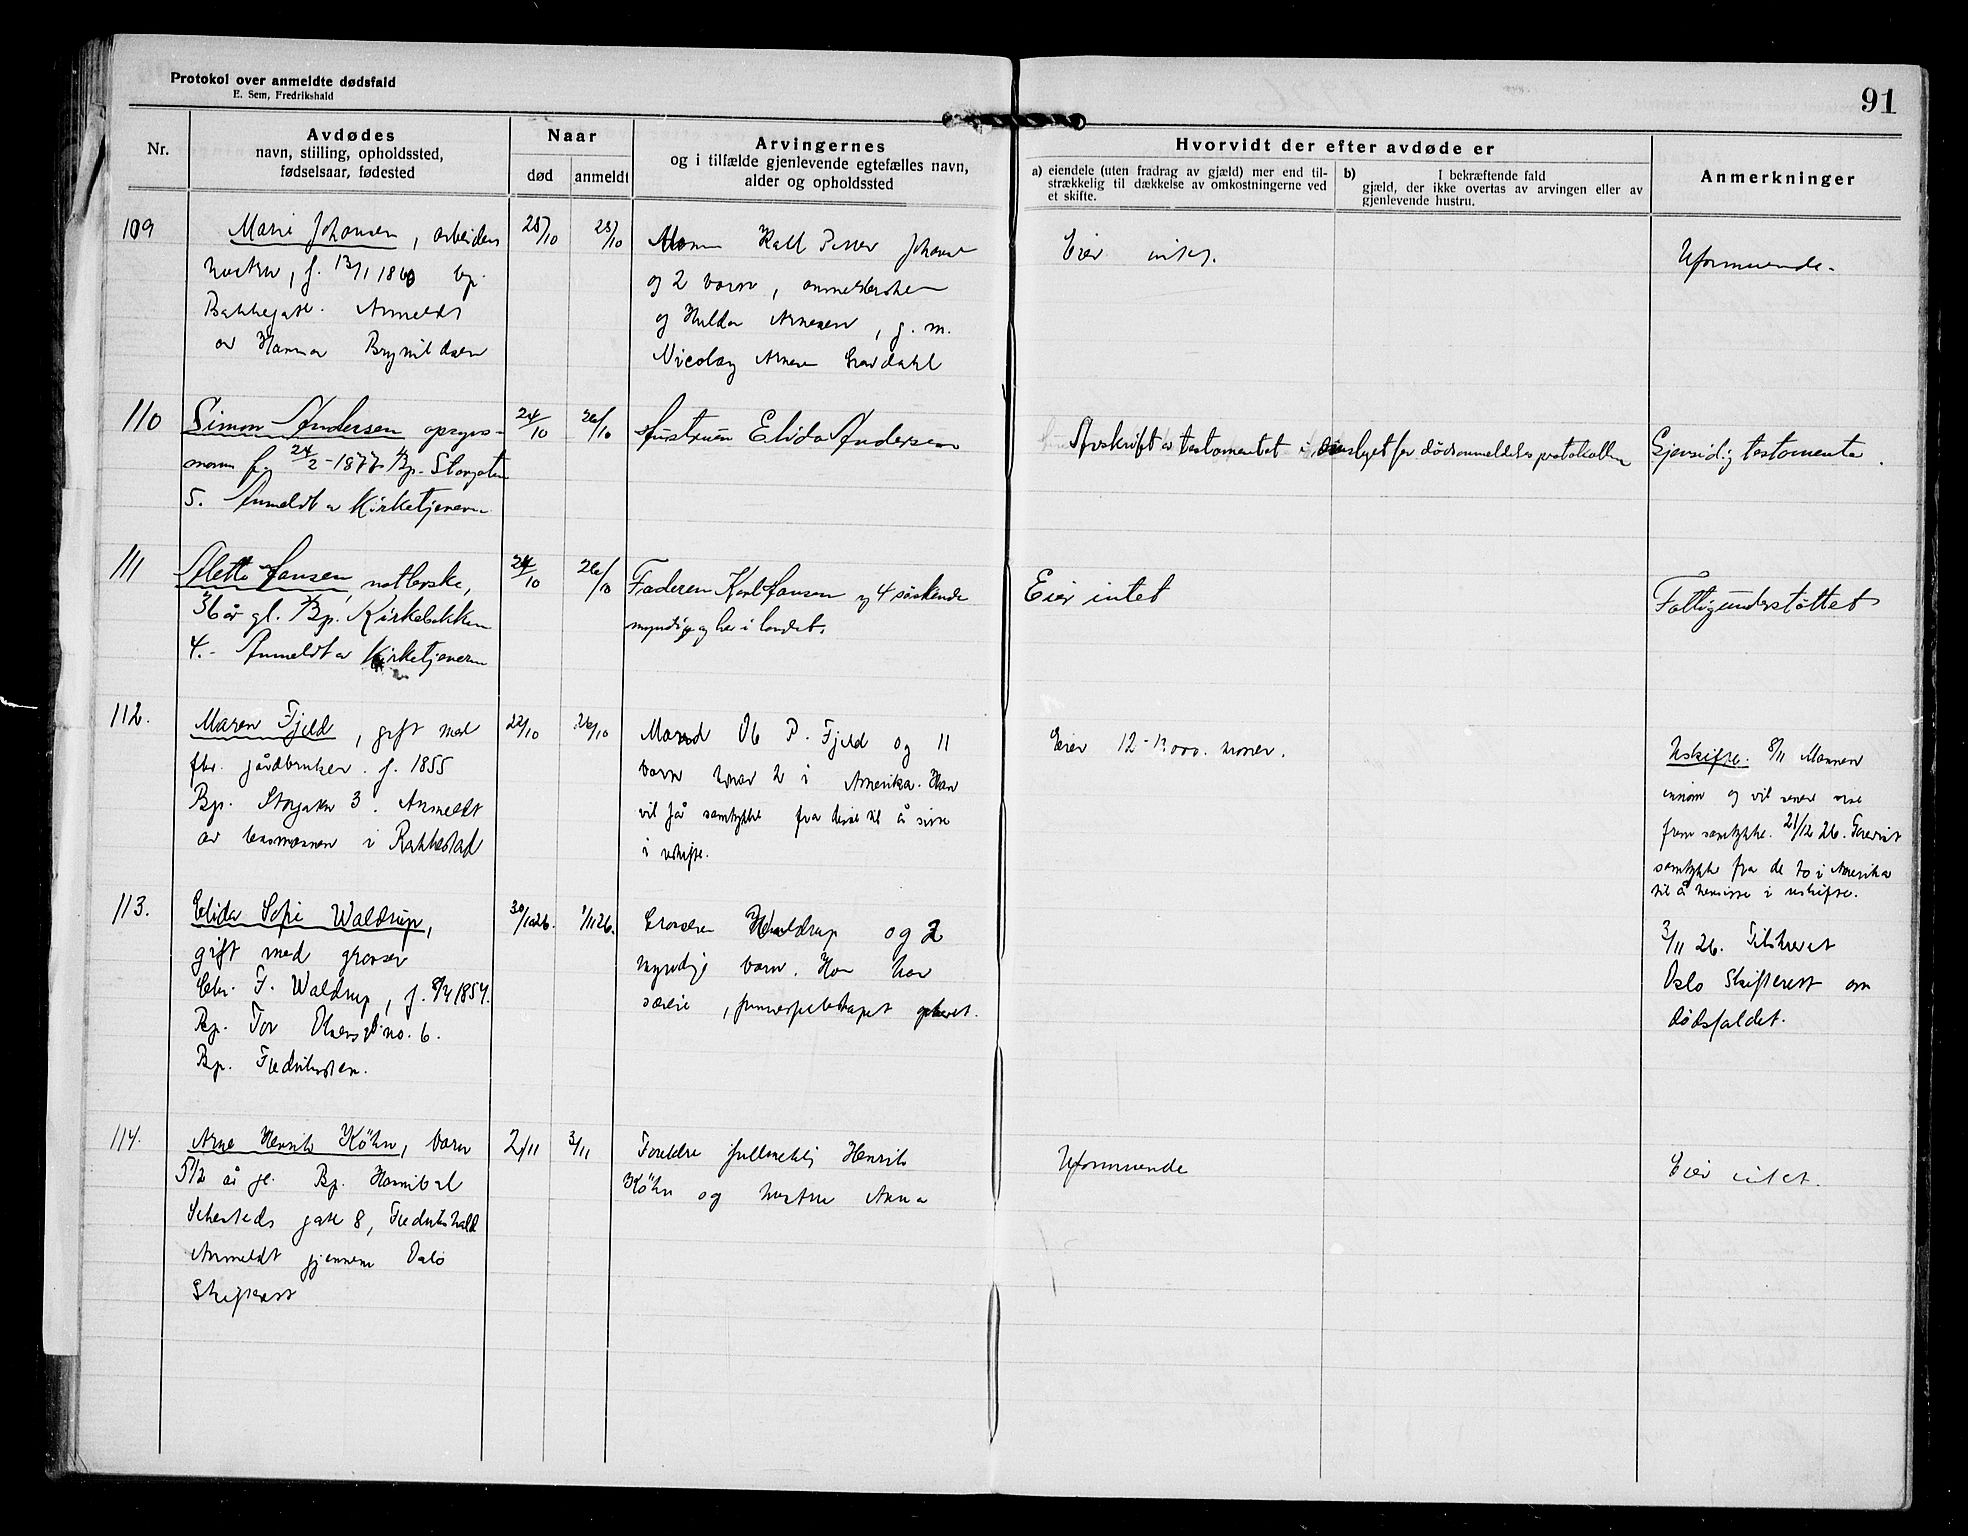 Protokol over anmeldte dødsfald
E. Sem, Fredrikshald
91
Nr.
Avdødes
navn, stilling, opholdssted,
fødselsaar, fødested
Naar
død
anmeldt
Arvingernes
og i tilfælde gjenlevende egtefælles navn,
alder og opholdssted
Hvorvidt der efter avdøde er
a) eiendele (uten fradrag av gjæld) mer end til-
strækkelig til dækkelse av omkostningerne ved
et skifte.
b) I bekræftende fald
gjæld, der ikke overtas av arvingen eller av
gjenlevende hustru.
Anmerkninger
109
Marie Johansen, arbeiders
hustru, f. 13/1 1860 bp.
Bakkegate. Anmeldt
av Hanna Brynildsen
25/10
25/10
Mannen Petter Johansen
og 2 barn, anmeldersken
og Hulda Arnesen, g. m.
Nicolay Arnesen
Eier intet.
Uformuende.
110
Simon Andersen opsyns-
mann f. 24/2-1877 Bp. Storgaten
5. Anmeldt av Kirketjeneren
24/10
26/10
Hustruen Elida Andersen
Avskrift av testamentet i omslaget for dødsanmeldelsprotokollen
Gjensidig testamente.
111
Alette Hansen,
36 år gl. Bp. Kirkebakken
4.- Anmeldt av Kirketjeneren
24/10
26/10
Faderen Karl Hansen og 4 søskende
myndige og her i landet.
Eier intet
Fattigunderstøttet
112.
Maren Fjeld, gift med
fhv. gårdbruker. f. 1855
Bp. Storgaten 3. Anmeldt
av lensmannen i Rakkestad
22/10
26/10
Mand Ole P. Fjeld og 11
barn hvorav 2 i Amerika. Han
vil få samtykke fra disse til å sitte
i uskifte.
Eier 12-13000. kroner.
Uskifte. 8/11 Mannen
innom og vil senere vise
frem samtykke. 21/12 26. Forevist
samtykke fra de to i Amerika
til å hensitte i uskifte.
113.
Elida Sofie Waldrup,
gift med grosser
Chr. F. Waldrup, f. 1854.
Bp. Tor Olsens gt. no. 6.
Bp. Fredriksten.
30/10 26.
1/11 26.
Grosserer Waldrup og 2
myndige barn. Hun har
særeie,
3/11 26. Tilskrevet
Oslo Skifterett om
dødsfaldet.
114.
Arne Henrik Köhn, barn
5 1/2 år gl. Bp. Hannibal
Sehesteds gate 8, Fredrikshald
Anmeldt gjennem Oslo
Skifterett
2/11
3/11
Foreldre fullmektig Henrik
Köhn og hustru Anna
Uformuende
Eier intet.